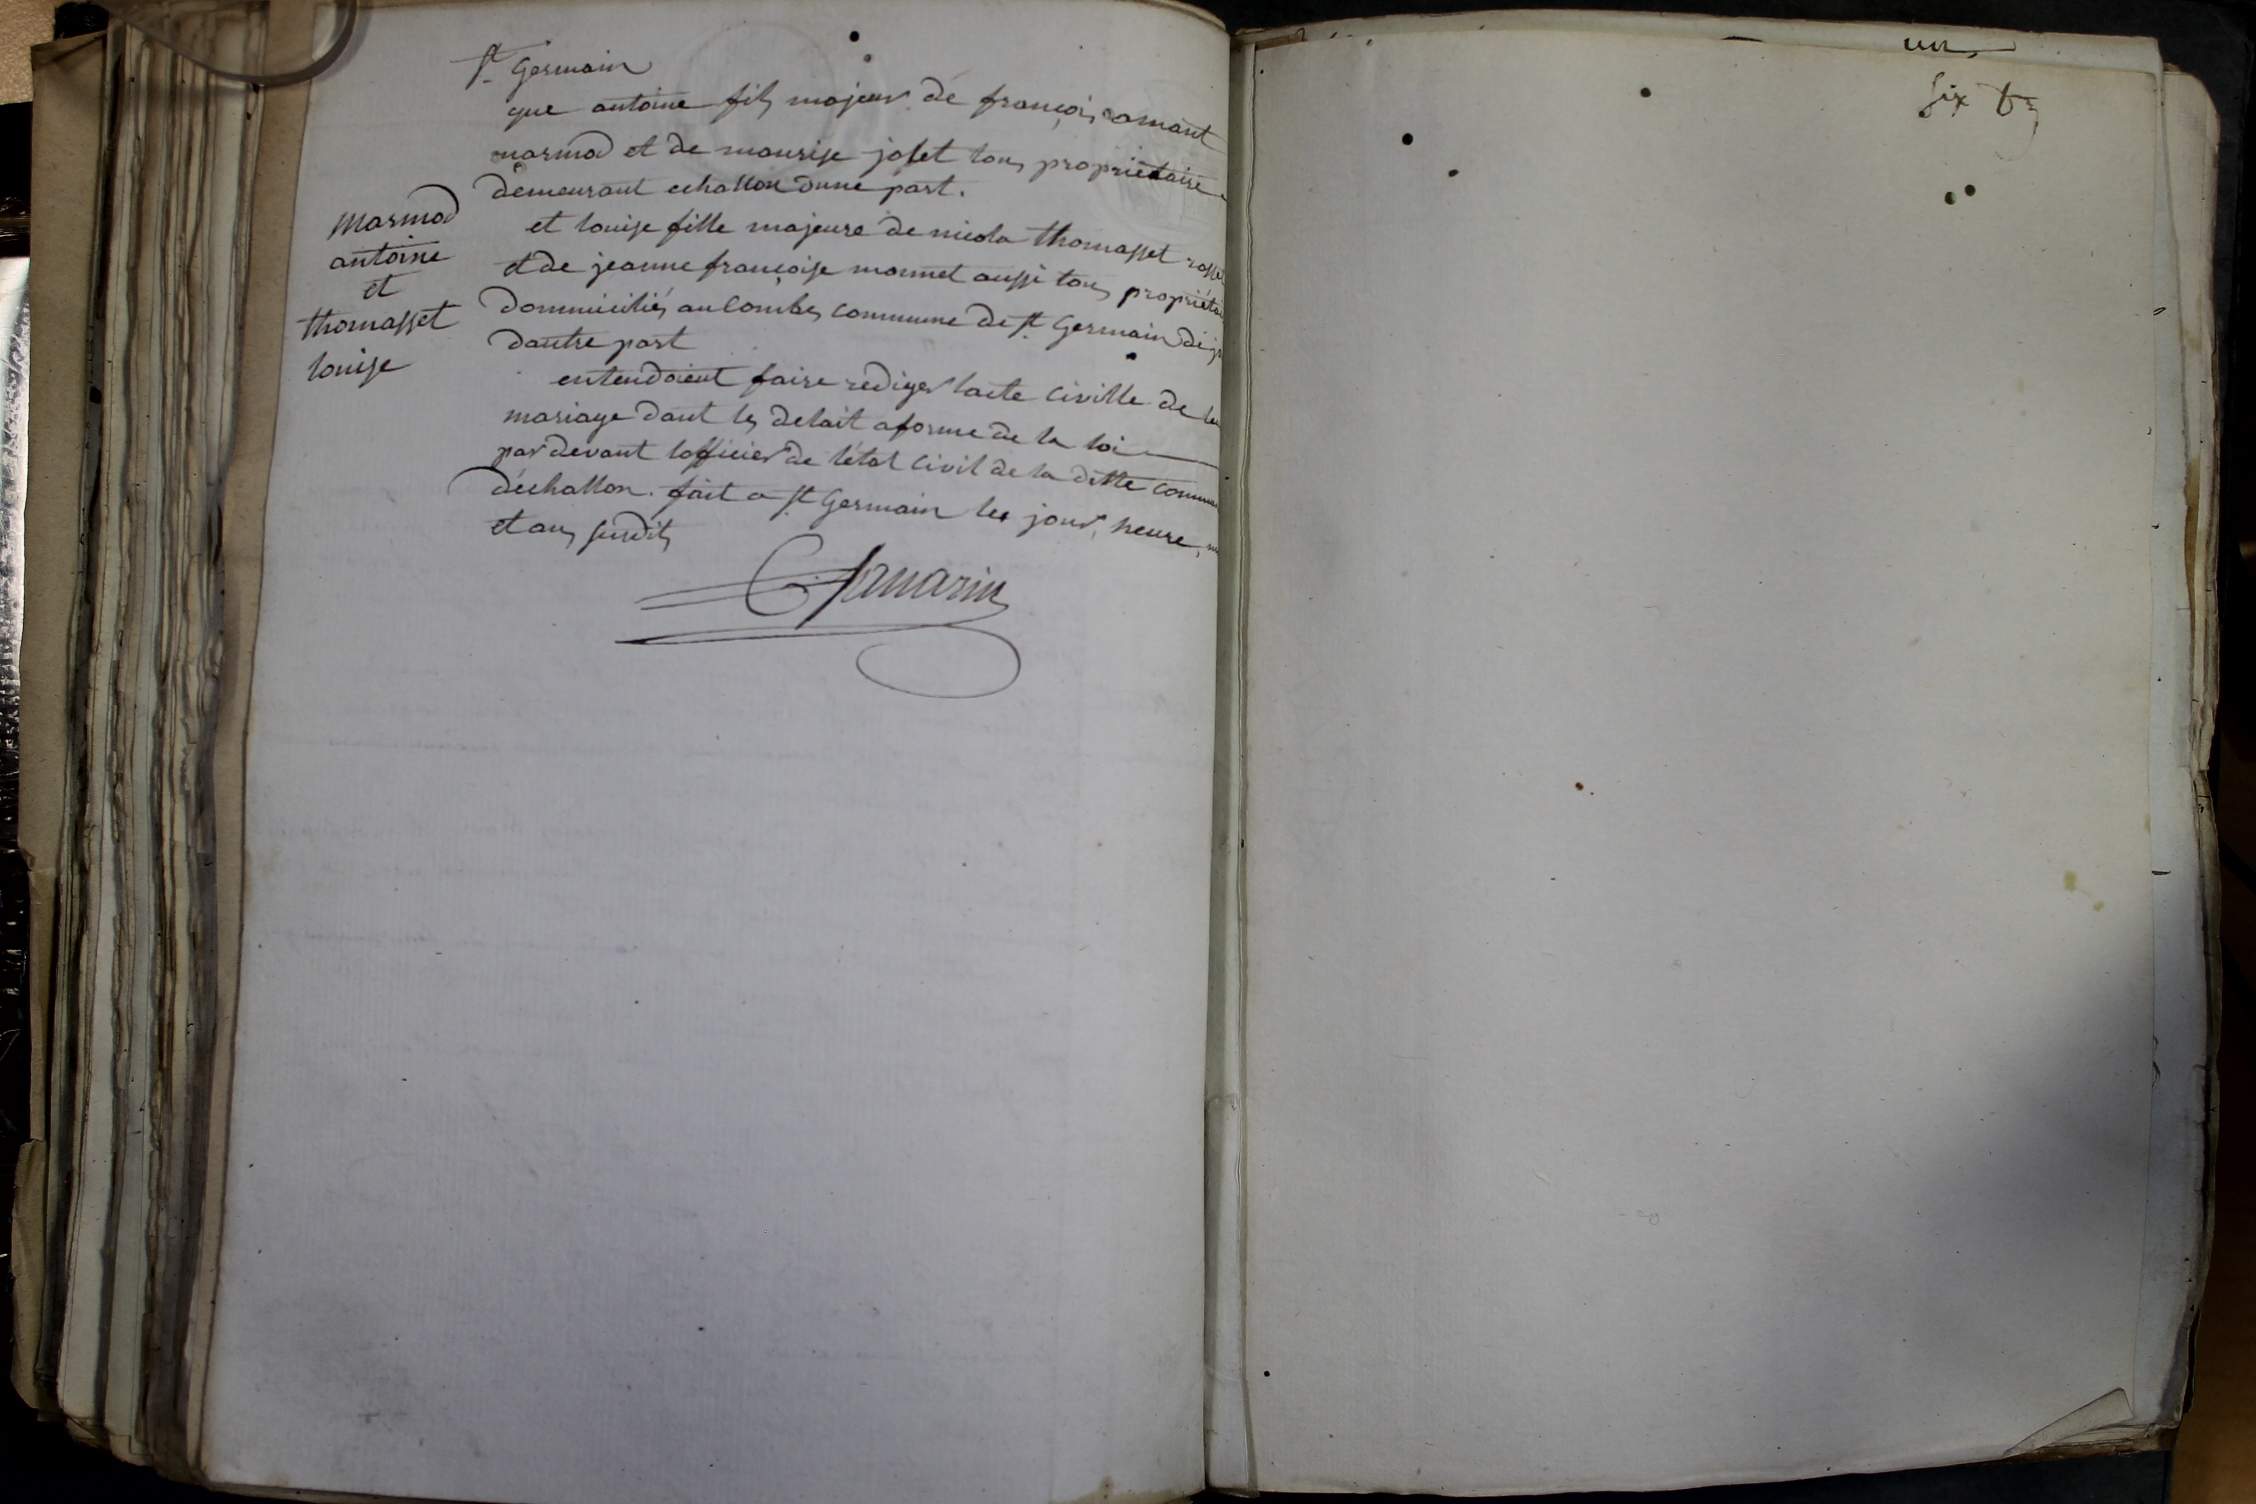 st Germain
que antoine fils majeur de françois amant
marmod et de maurise joset tous propriétaire
demeurant echallon dune part.
marmod
antoine
et
thomasset
louise
et louise fille majeure de nicola thomasset rosset
et de jeanne françoise monnet aussi tous propriétai
dommiciliés au Combes commune de st Germain de j
dautre part
entendoient faire rediger lacte civille de leu
mariage dant les delait aforme de la loi
par devant lofficier de létat civil de la ditte commun
déchallon. fait a st Germain les jour, heure, m
et ans susdits
un
Six